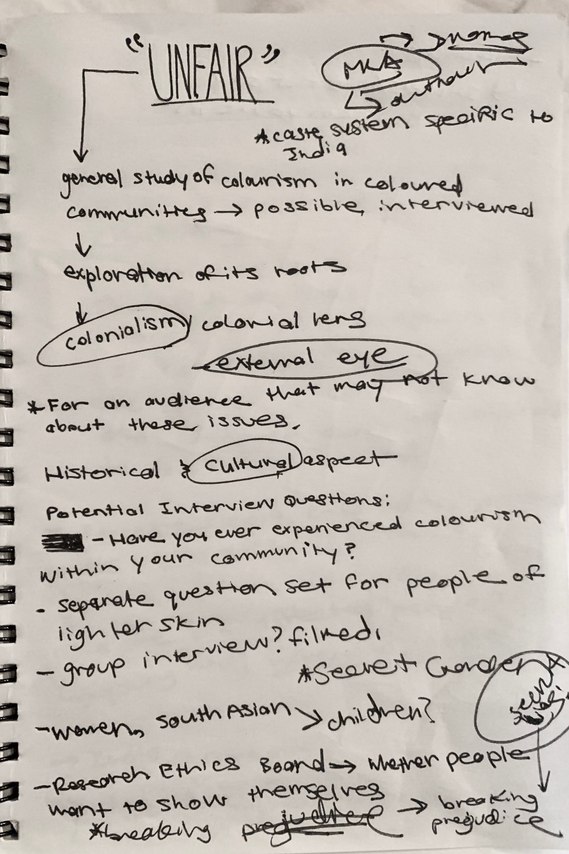 "UNFAIR"
MLA → names
↳ author
*caste system specific to
India
general study of colourism in coloured
communities → possible, interviewed
↓
exploration of its roots
↓
colonialism / colonial lens
external eye
*For an audience that may not know
about these issues.
Historical & cultural aspect
Potential Interview Questions:
- Have you ever experienced colourism
within your community?
- separate question set for people of
lighter skin
- group interview? filmed,
*Secret Garden*
- women, South Asian ↘ children?
- Research Ethics Board → whether people
want to show themselves
*breaking prejudice → breaking
prejudice